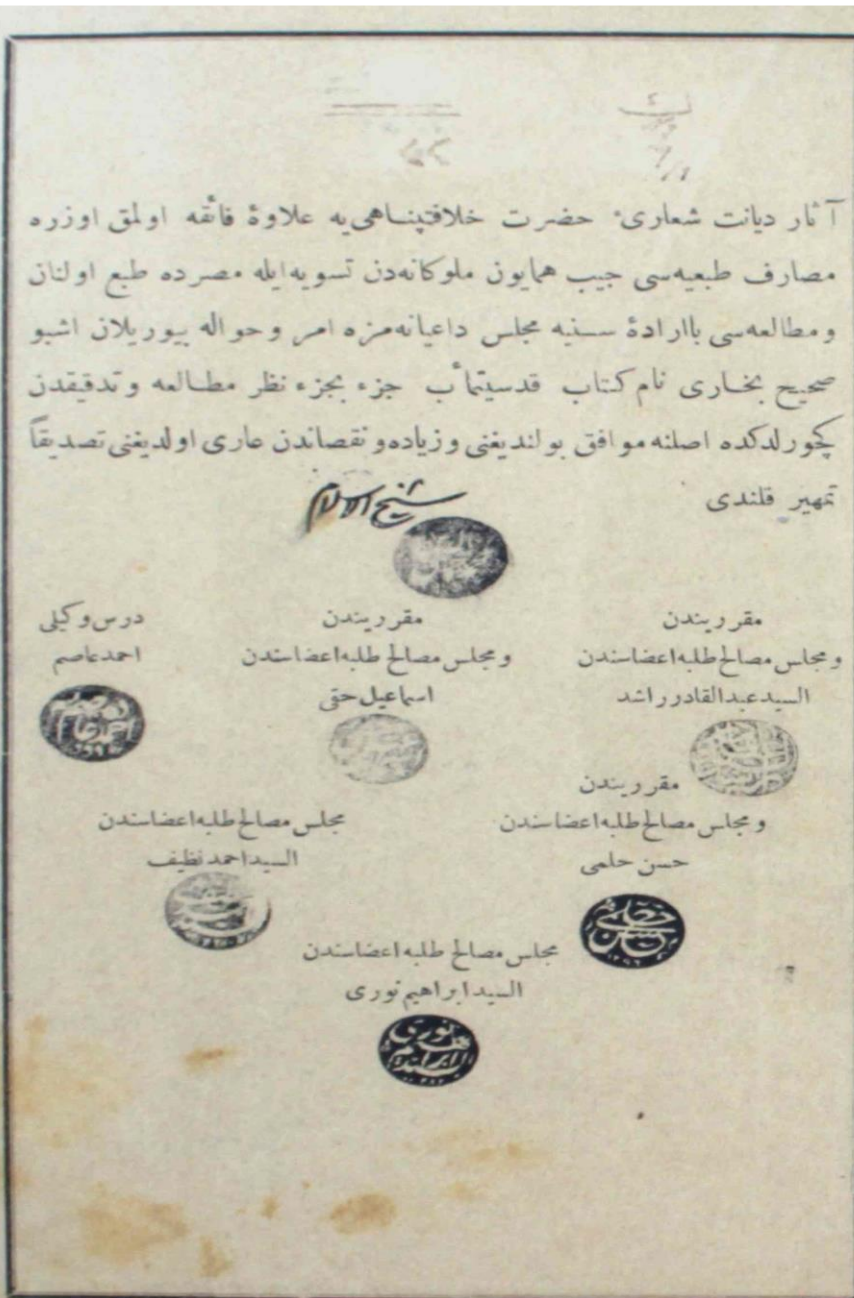 آثار ديانت شعارىٔ حضرت خلافتپناهى‌يه علاوهٔ فائقه اولمق اوزره
مصارف طبعيه‌سى جيب همايون ملوكانه‌دن تسويه‌ايله مصرده طبع اولنان
ومطالعه‌سى باارادهٔ سنيه مجلس داعيانه‌مزه امر وحواله بيوريلان اشبو
صحيح بخارى نام كتاب قدسيتمأب جزء بجزء نظر مطالعه وتدقيقدن
كچورلدكده اصلنه موافق بولنديغنى وزياده‌ونقصاندن عارى اولديغنى تصديقاً
تمهير قلندى
شيخ الاسلام
مقرريندن
ومجلس مصالح طلبه‌اعضاسندن
السيد عبدالقادر راشد
مقرريندن
ومجلس مصالح طلبه‌اعضاسندن
اسماعيل حقى
درس‌وكيلى
احمدعاصم
مقرريندن
ومجلس مصالح طلبه‌اعضاسندن
حسن حلمى
مجلس مصالح طلبه‌اعضاسندن
السيداحمدنظيف
مجلس مصالح طلبه‌اعضاسندن
السيدابراهيم‌نورى